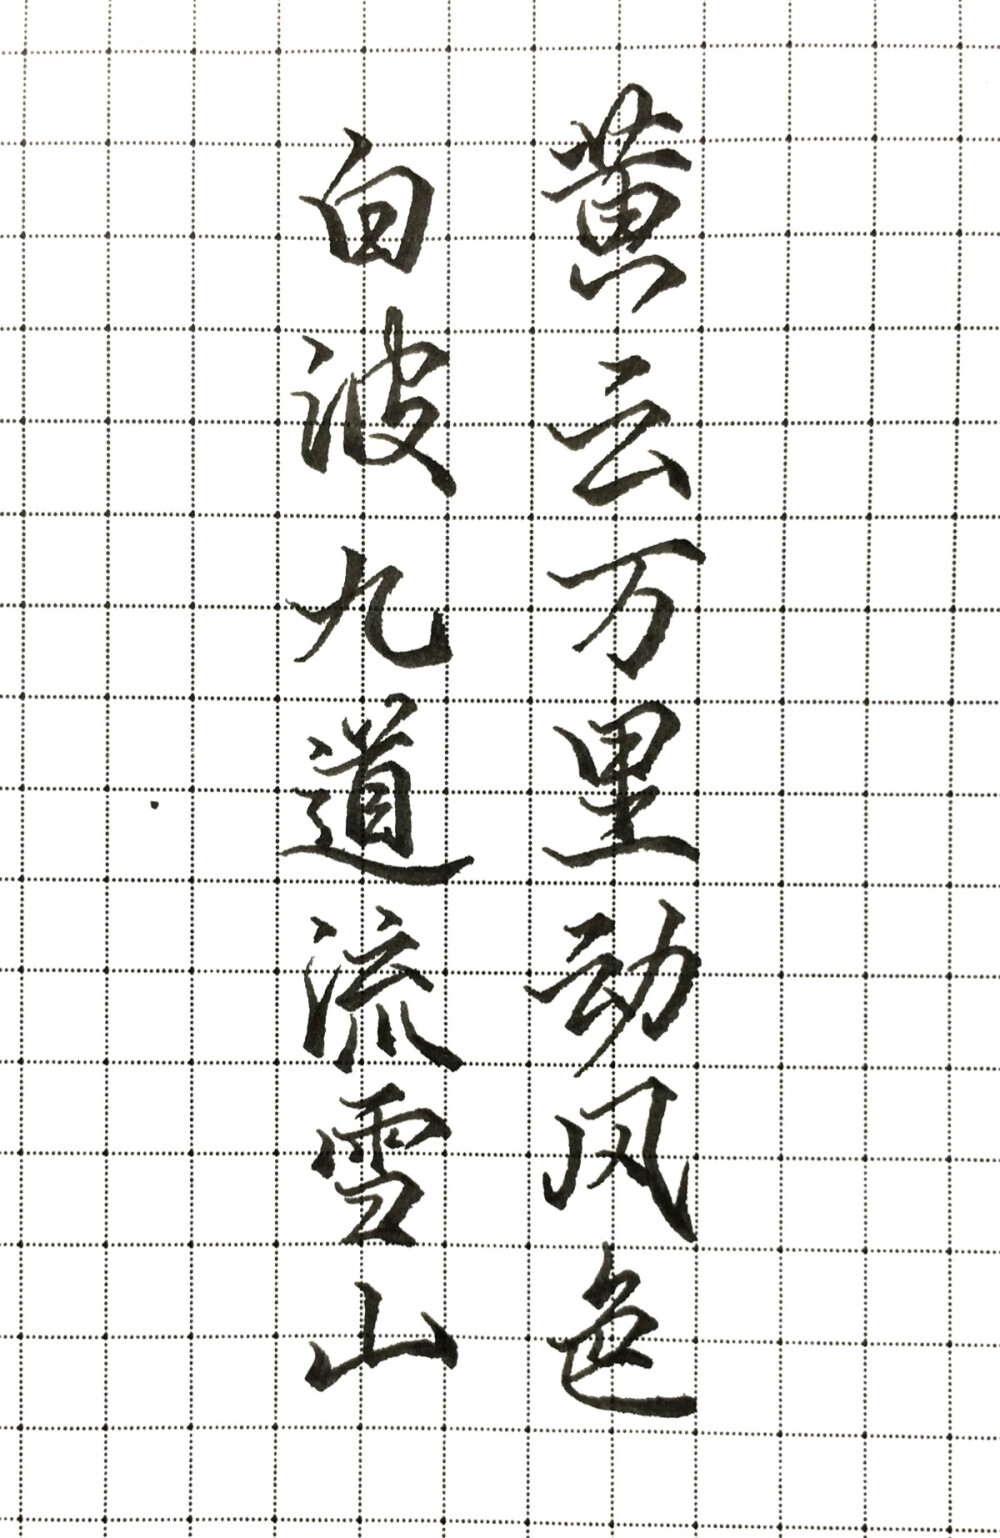 黄云万里动风色
白波九道流雪山